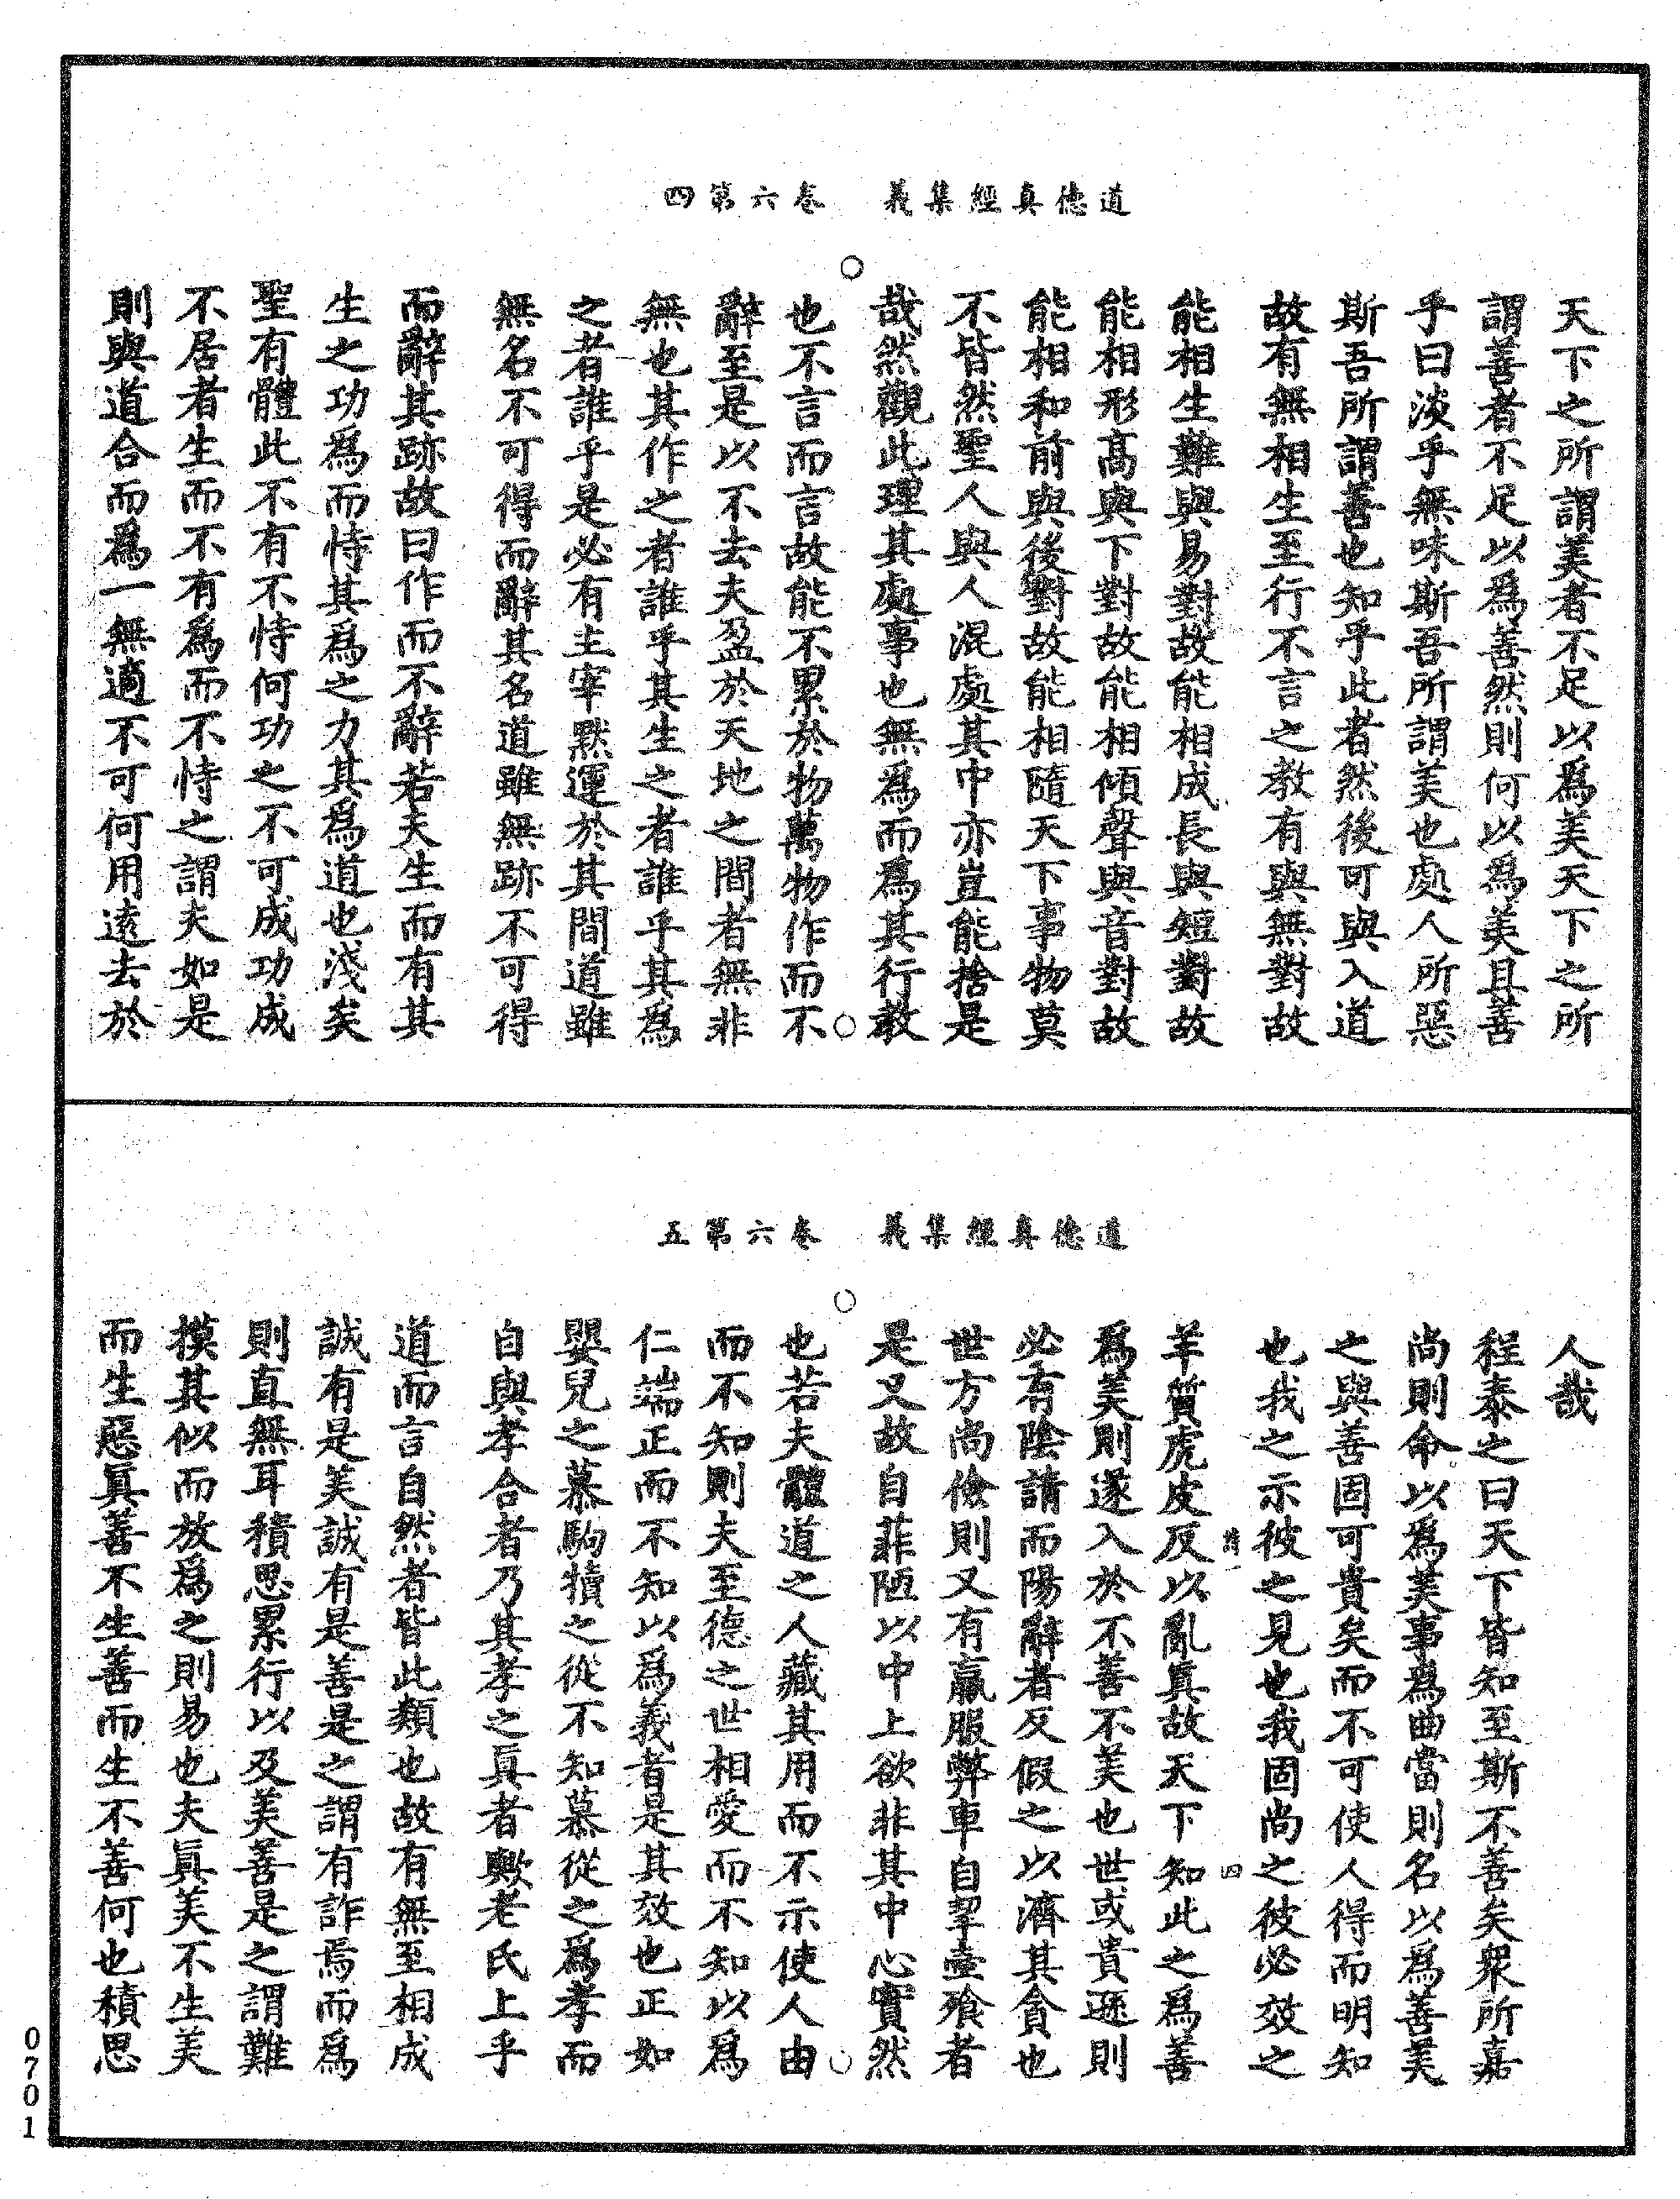 道德真經集義　卷六第四
天下之所謂美者不足以爲美天下之所
謂善者不足以爲善然則何以爲美且善
乎曰淡乎無味斯吾所謂美也處人所惡
斯吾所謂善也知乎此者然後可與入道
故有無相生至行不言之教有與無對故
能相生難與易對故能相成長與短對故
能相形高與下對故能相傾聲與音對故
能相和前與後對故能相隨天下事物莫
不皆然聖人與人混處其中亦豈能捨是
哉然觀此理其處事也無爲而爲其行教
也不言而言故能不累於物萬物作而不
辭至是以不去夫盈於天地之間者無非
無也其作之者誰乎其生之者誰乎其爲
之者誰乎是必有主宰黙運於其間道雖
無名不可得而辭其名道雖無跡不可得
而辭其跡故曰作而不辭若夫生而有其
生之功爲而恃其爲之力其爲道也淺矣
聖有體此不有不恃何功之不可成功成
不居者生而不有爲而不恃之謂夫如是
則與道合而爲一無適不可何用遠去於
道德真經集義　卷六第五
人哉
程泰之曰天下皆知至斯不善矣衆所嘉
尚則命以爲美事爲曲當則名以爲善美
之與善固可貴矣而不可使人得而明知
也我之示彼之見也我固尚之彼必效之
羊質虎皮反以亂真故天下知此之爲善
爲美則遂入於不善不美也世或貴遜則
必有陰請而陽辭者反假之以濟其貪也
世方尚儉則又有羸服弊車自挈壷飱者
是又故自菲陋以中上欲非其中心實然
也若夫體道之人藏其用而不示使人由
而不知則夫至德之世相愛而不知以爲
仁端正而不知以爲義者是其效也正如
嬰兒之慕駒犢之從不知慕從之爲孝而
自與孝合者乃其孝之真者歟老氏上乎
道而言自然者皆此類也故有無至相成
誠有是美誠有是善是之謂有詐焉而爲
則直無耳積思累行以及美善是之謂難
摸其似而放爲之則易也夫真美不生美
而生惡真善不生善而生不善何也積思
四
0701